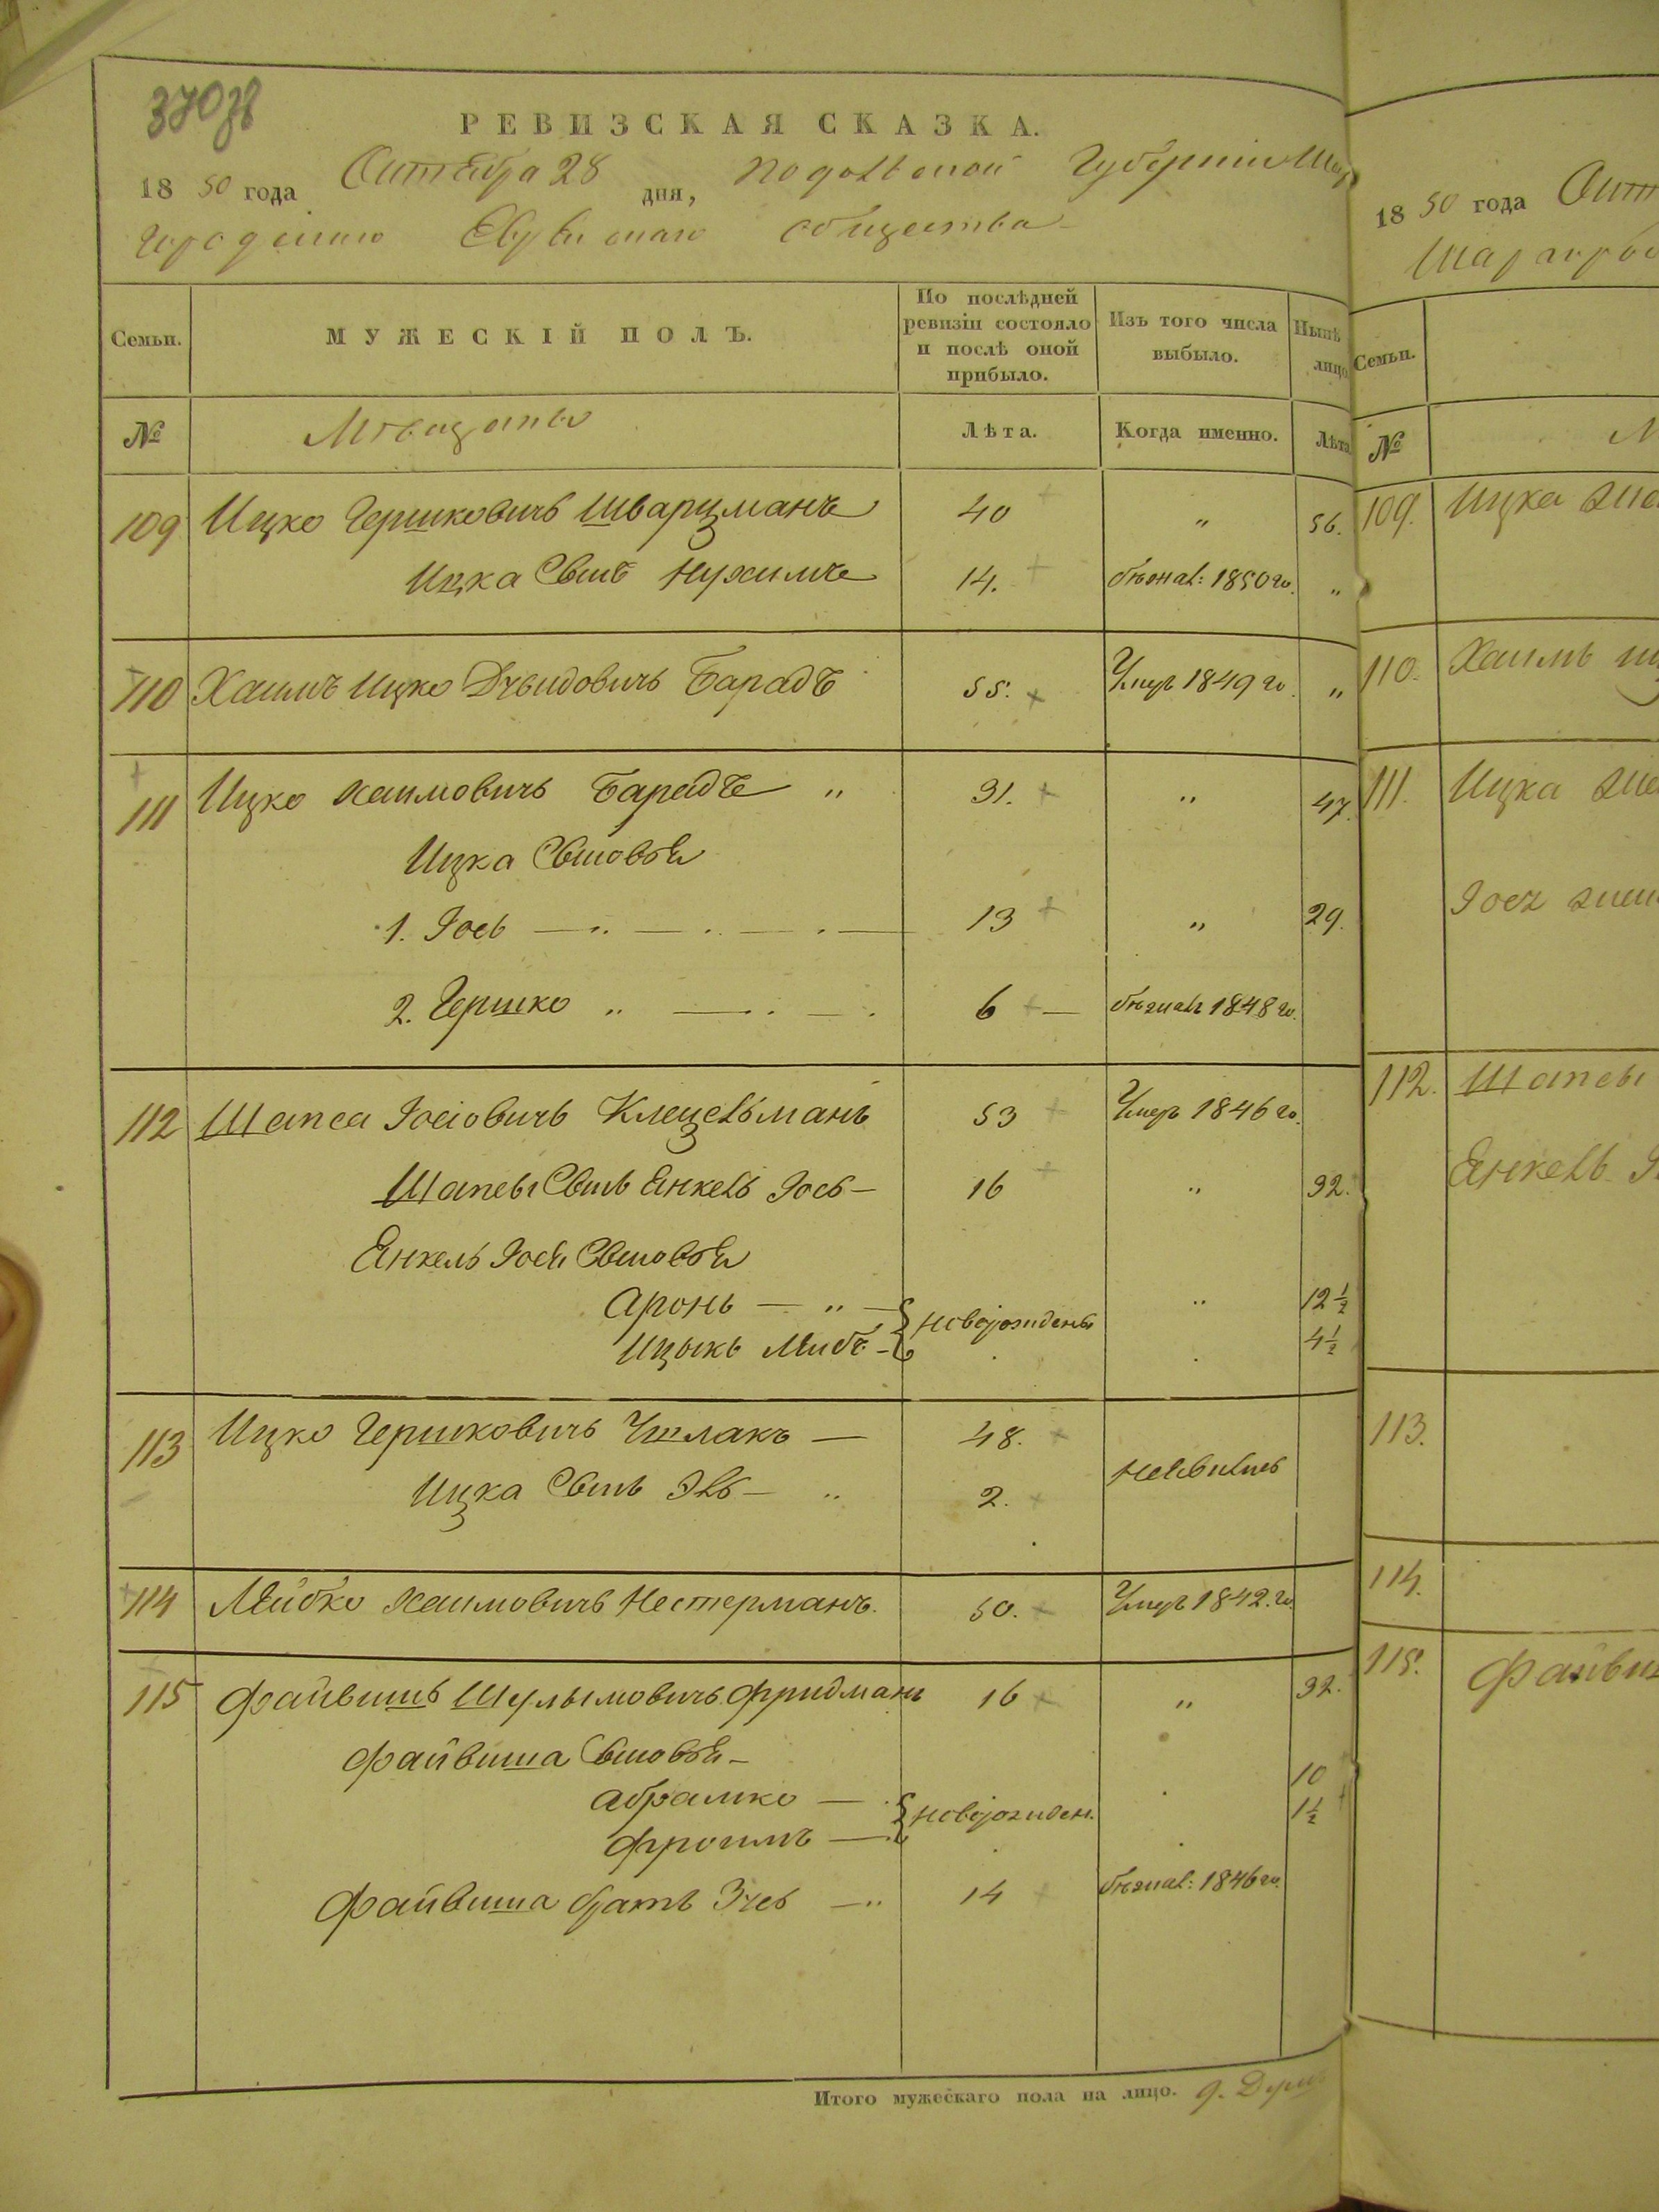 370
РЕВИЗСКАЯ СКАЗКА.
18 50 года Октября 28 дня, Подольской Губернии Шар
городского Еврейскаго общества
Семьи.
МУЖЕСКІЙ ПОЛЪ.
По послѣдней ревизіи состояло и послѣ оной прибыло.
Изъ того числа выбыло.
Нынѣ лицо
№
Мѣщаны
Лѣта.
Когда именно.
Лѣта
109 Ицко Гершковичъ Шварцманъ 40 " 56.
Ицка Сынъ Нухимъ 14. бѣжал: 1850 го. "
110 Хаимъ Ицко Давидовичъ Барадъ 55. Умеръ 1849 го. "
111 Ицко Хаимовичъ Барадъ " 31. " 47.
Ицка Сыновья
1. Іось 13 " 29.
2. Гершко " 6 — бѣжалъ 1848 го.
112 Шапса Іосіовичъ Клецельманъ 53 Умеръ 1846 го.
Шапсы Сынъ Янкель Іось — 16 " 32.
Янкель Іося Сыновья
Аронъ — " — новорожденны " 12 1/2
Ицыкъ Лейбъ — 4 1/2
113 Ицко Гершковичъ Чшлакъ — 48.
неявились
Ицка Сынъ Эль — " 2.
114 Лейбко Хаимовичъ Нестерманъ. 50. Умеръ 1842. го.
115 Файвишъ Шулымовичъ Фридманъ 16 " 32.
Файвиша Сыновья —
Абрамко — новорожден. 10
Фроимъ — 1 1/2
Файвиша братъ — " 14 бѣжал: 1846 го.
Итого мужескаго пола на лицо. 9.
18 50 года Окт
Шаргоро
Семьи.
№
М
109. Ицка же
110. Хаимъ иц
111. Ицка же
Іося жен
112. Шапсы
Янкель І
113.
114.
115. Файвиш